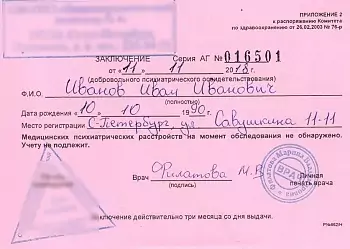 ПРИЛОЖЕНИЕ 2
к распоряжению Комитета
по здравоохранению от 26.02.2003 № 76-р
ЗАКЛЮЧЕНИЕ Серия АГ № 016501
от «11» 11 2018 г.
(добровольного психиатрического освидетельствования)
Ф.И.О. Иванов Иван Иванович
(полностью)
Дата рождения «10» 10 1990 г.
Место регистрации С-Петербург, ул. Савушкина 11-11
Медицинских психиатрических расстройств на момент обследования не обнаружено.
Учету не подлежит.
Врач Филатова М.В.
(подпись)
Личная
печать врача
Филатова Марина
ВРАЧ
Заключение действительно три месяца со дня выдачи.